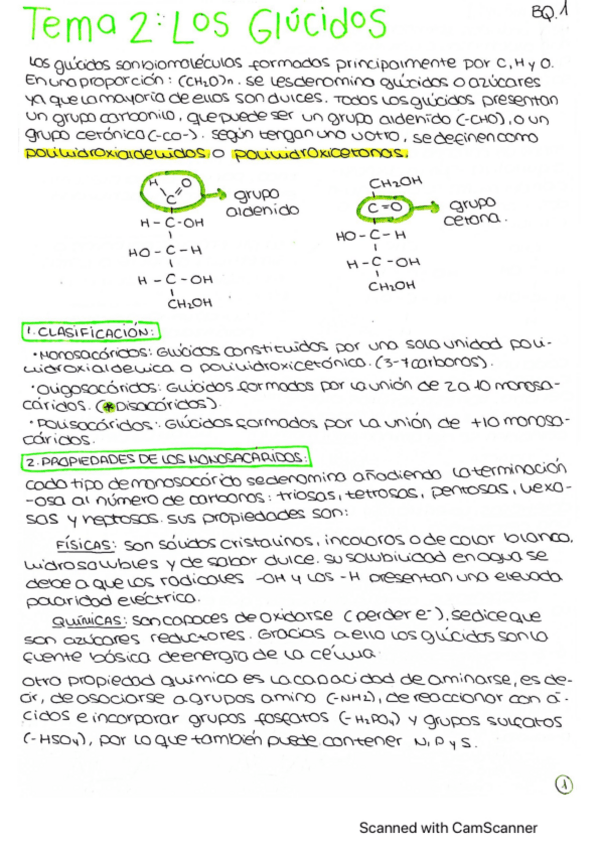 Tema 2: Los Glúcidos
BQ.1
Los glúcidos son biomoléculas formadas principalmente por C, H y O.
En una proporción: (CH₂O)n. se les denomina glúcidos o azúcares
ya que la mayoría de ellos son dulces. Todos los glúcidos presentan
un grupo carbonilo, que puede ser un grupo aldehído (-CHO), o un
grupo cetónico (-CO-). según tengan uno u otro, se definen como
polihidroxialdehídos o polihidroxicetonas.
H O
C
grupo
aldehído
H - C - OH
HO - C - H
H - C - OH
CH₂OH
CH₂OH
C = O
grupo
cetona.
HO - C - H
H - C - OH
CH₂OH
1. CLASIFICACIÓN:
· Monosacáridos: Glúcidos constituidos por una sola unidad poli-
hidroxialdehídica o polihidroxicetónica. (3-7 carbonos).
· Oligosacáridos: Glúcidos formados por la unión de 2 a 10 monosa-
cáridos. (* Disacáridos).
· Polisacáridos: Glúcidos formados por la unión de +10 monosa-
cáridos.
2. PROPIEDADES DE LOS MONOSACÁRIDOS:
cada tipo de monosacárido se denomina añadiendo la terminación
-osa al número de carbonos: triosas, tetrosas, pentosas, hexo-
sas y heptosas. sus propiedades son:
FÍSICAS: son sólidos cristalinos, incoloros o de color blanco,
hidrosolubles y de sabor dulce. su solubilidad en agua se
debe a que los radicales -OH y los -H presentan una elevada
polaridad eléctrica.
QUÍMICAS: son capaces de oxidarse (perder e⁻), se dice que
son azúcares reductores. Gracias a ello los glúcidos son la
fuente básica de energía de la célula.
otra propiedad química es la capacidad de aminarse, es de-
cir, de asociarse a grupos amino (-NH2), de reaccionar con á-
cidos e incorporar grupos fosfatos (-H₂PO₄) y grupos sulfatos
(-HSO₄), por lo que también puede contener N, P y S.
1
Scanned with CamScanner